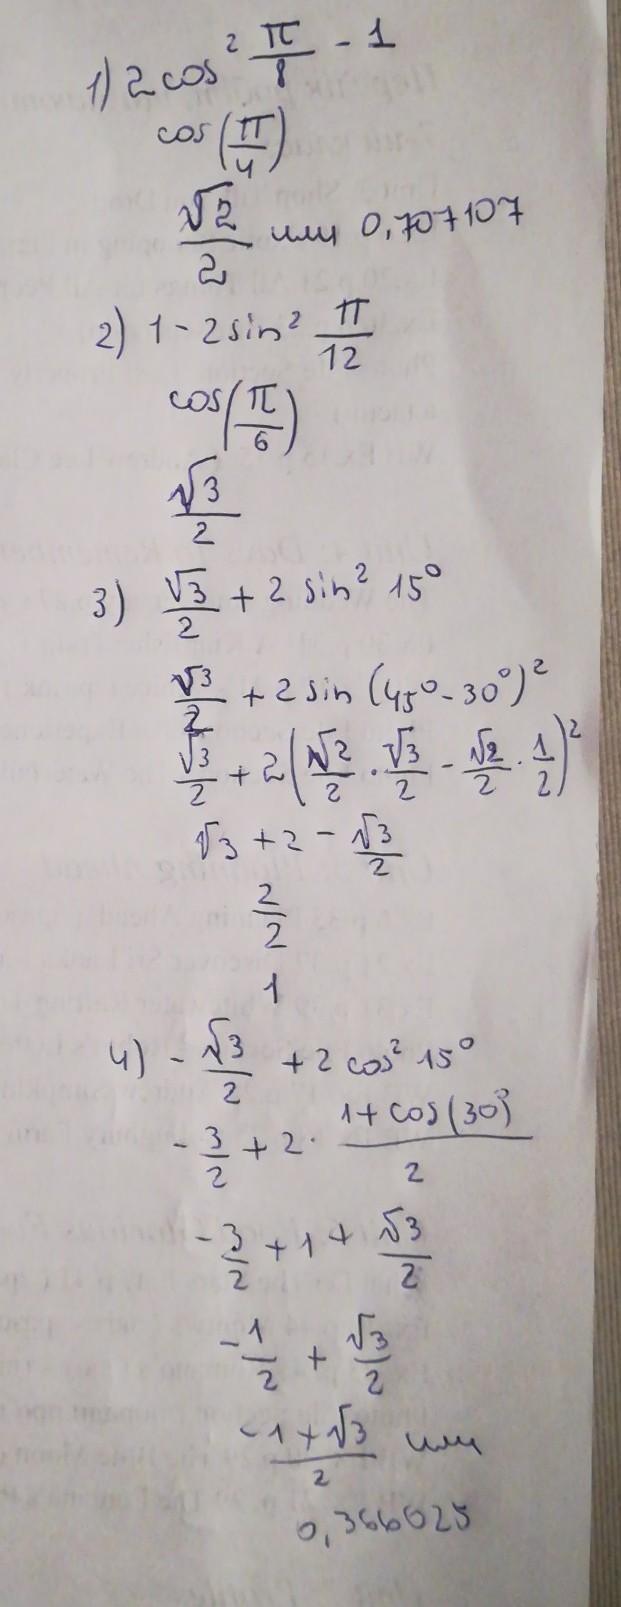 1) 2 cos² π/8 - 1
cos(π/4)
√2/2 или 0,707107
2) 1 - 2 sin² π/12
cos(π/6)
√3/2
3) √3/2 + 2 sin² 15°
√3/2 + 2 sin (45° - 30°)²
√3/2 + 2(√2/2 · √3/2 - √2/2 · 1/2)²
√3 + 2 - √3/2
2/2
1
4) - √3/2 + 2 cos² 15°
- 3/2 + 2 · 1 + cos(30°)/2
- 3/2 + 1 + √3/2
- 1/2 + √3/2
-1 + √3/2 или
0,366025